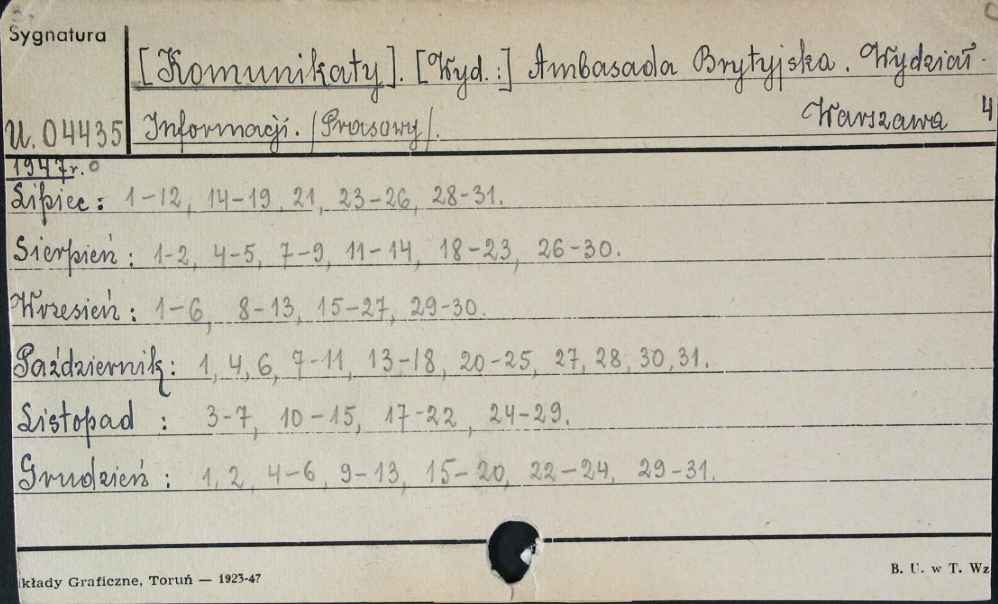 Sygnatura
[Komunikaty]. [Wyd.:] Ambasada Brytyjska. Wydział
U. 04435 Informacji. /Prasowy/. Warszawa 4
1947r.
Lipiec: 1-12, 14-19, 21, 23-26, 28-31.
Sierpień: 1-2, 4-5, 7-9, 11-14, 18-23, 26-30.
Wrzesień: 1-6, 8-13, 15-27, 29-30.
Październik: 1, 4, 6, 7-11, 13-18, 20-25, 27, 28, 30, 31.
Listopad : 3-7, 10-15, 17-22, 24-29.
Grudzień : 1, 2, 4-6, 9-13, 15-20, 22-24, 29-31.
kłady Graficzne, Toruń — 1923-47 B. U. w T. Wz